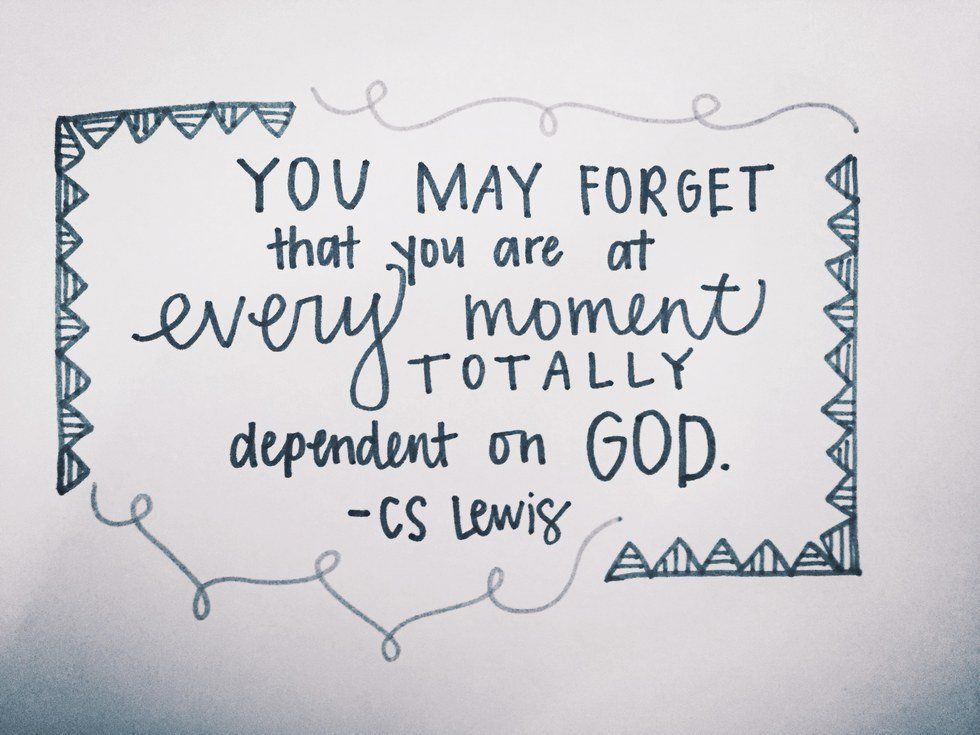 YOU MAY FORGET
that you are at
every moment
TOTALLY
dependent on GOD.
-CS Lewis